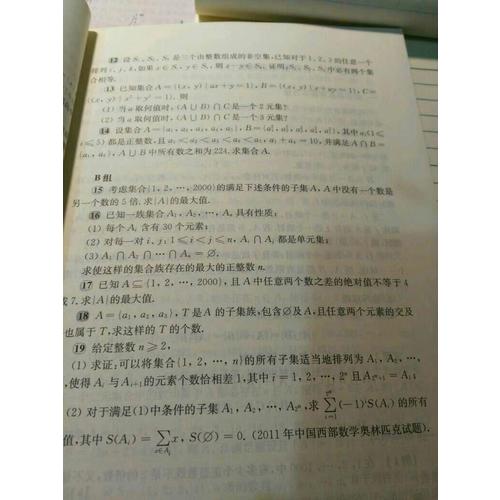 12 设 S₁, S₂, S₃ 是三个由整数组成的非空集,已知对于 1, 2, 3 的任意一个
排列 i, j, k, 如果 x∈Sᵢ, y∈Sⱼ, 则 x−y∈Sₖ. 证明:S₁, S₂, S₃ 中必有两个集
合相等.
13 已知集合 A = {(x, y) | ax + y = 1}, B = {(x, y) | x + ay = 1}, C =
{(x, y) | x² + y² = 1}. 则
(1) 当 a 取何值时, (A∪B)∩C 是一个 2 元集?
(2) 当 a 取何值时, (A∪B)∩C 是一个 3 元集?
14 设集合 A = {a₁, a₂, a₃, a₄, a₅}, B = {a₁², a₂², a₃², a₄², a₅²}, 其中 aᵢ(1≤
i≤5) 都是正整数, 且 a₁<a₂<a₃<a₄<a₅, a₁+a₄=10, 并满足 A∩B=
{a₁, a₄}, A∪B 中所有数之和为 224, 求集合 A.
B 组
15 考虑集合{1, 2, …, 2000}的满足下述条件的子集 A, A 中没有一个数是
另一个数的 5 倍. 求 |A| 的最大值.
16 已知一族集合 A₁, A₂, …, Aₙ 具有性质:
(1) 每个 Aᵢ 含有 30 个元素;
(2) 对每一对 i, j: 1≤i<j≤n, Aᵢ∩Aⱼ 都是单元集;
(3) A₁∩A₂∩…∩Aₙ = ∅.
求使这样的集合族存在的最大的正整数 n.
17 已知 A⊆{1, 2, …, 2000}, 且 A 中任意两个数之差的绝对值不等于 4
或 7. 求 |A| 的最大值.
18 A = {a₁, a₂, a₃}, T 是 A 的子集族, 包含∅及 A, 且任意两个元素的交及
也属于 T, 求这样的 T 的个数.
19 给定整数 n≥2,
(1) 求证:可以将集合{1, 2, …, n}的所有子集适当地排列为 A₁, A₂, …,
使得 Aᵢ 与 Aᵢ₊₁ 的元素个数恰相差 1, 其中 i = 1, 2, …, 2ⁿ 且 A₂ⁿ₊₁ = A₁;
(2) 对于满足(1)中条件的子集 A₁, A₂, …, A₂ⁿ, 求 ∑(i=1→2ⁿ) (−1)ⁱS(Aᵢ) 的所有
值, 其中 S(Aᵢ) = ∑(x∈Aᵢ) x, S(∅) = 0. (2011 年中国西部数学奥林匹克试题).